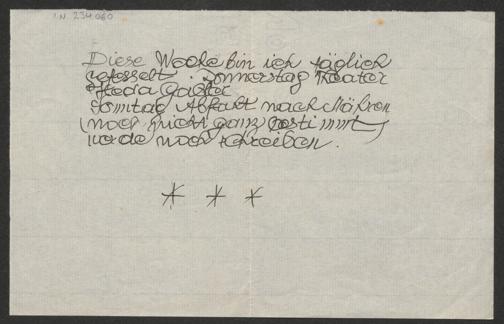 I.N. 234.060
Diese Woche bin ich täglich
gefesselt. Donnerstag Theater
Heda Gabler
Sonntag Abfart nach Mähren
(noch nicht ganz bestimmt)
werde noch schreiben.
* * *